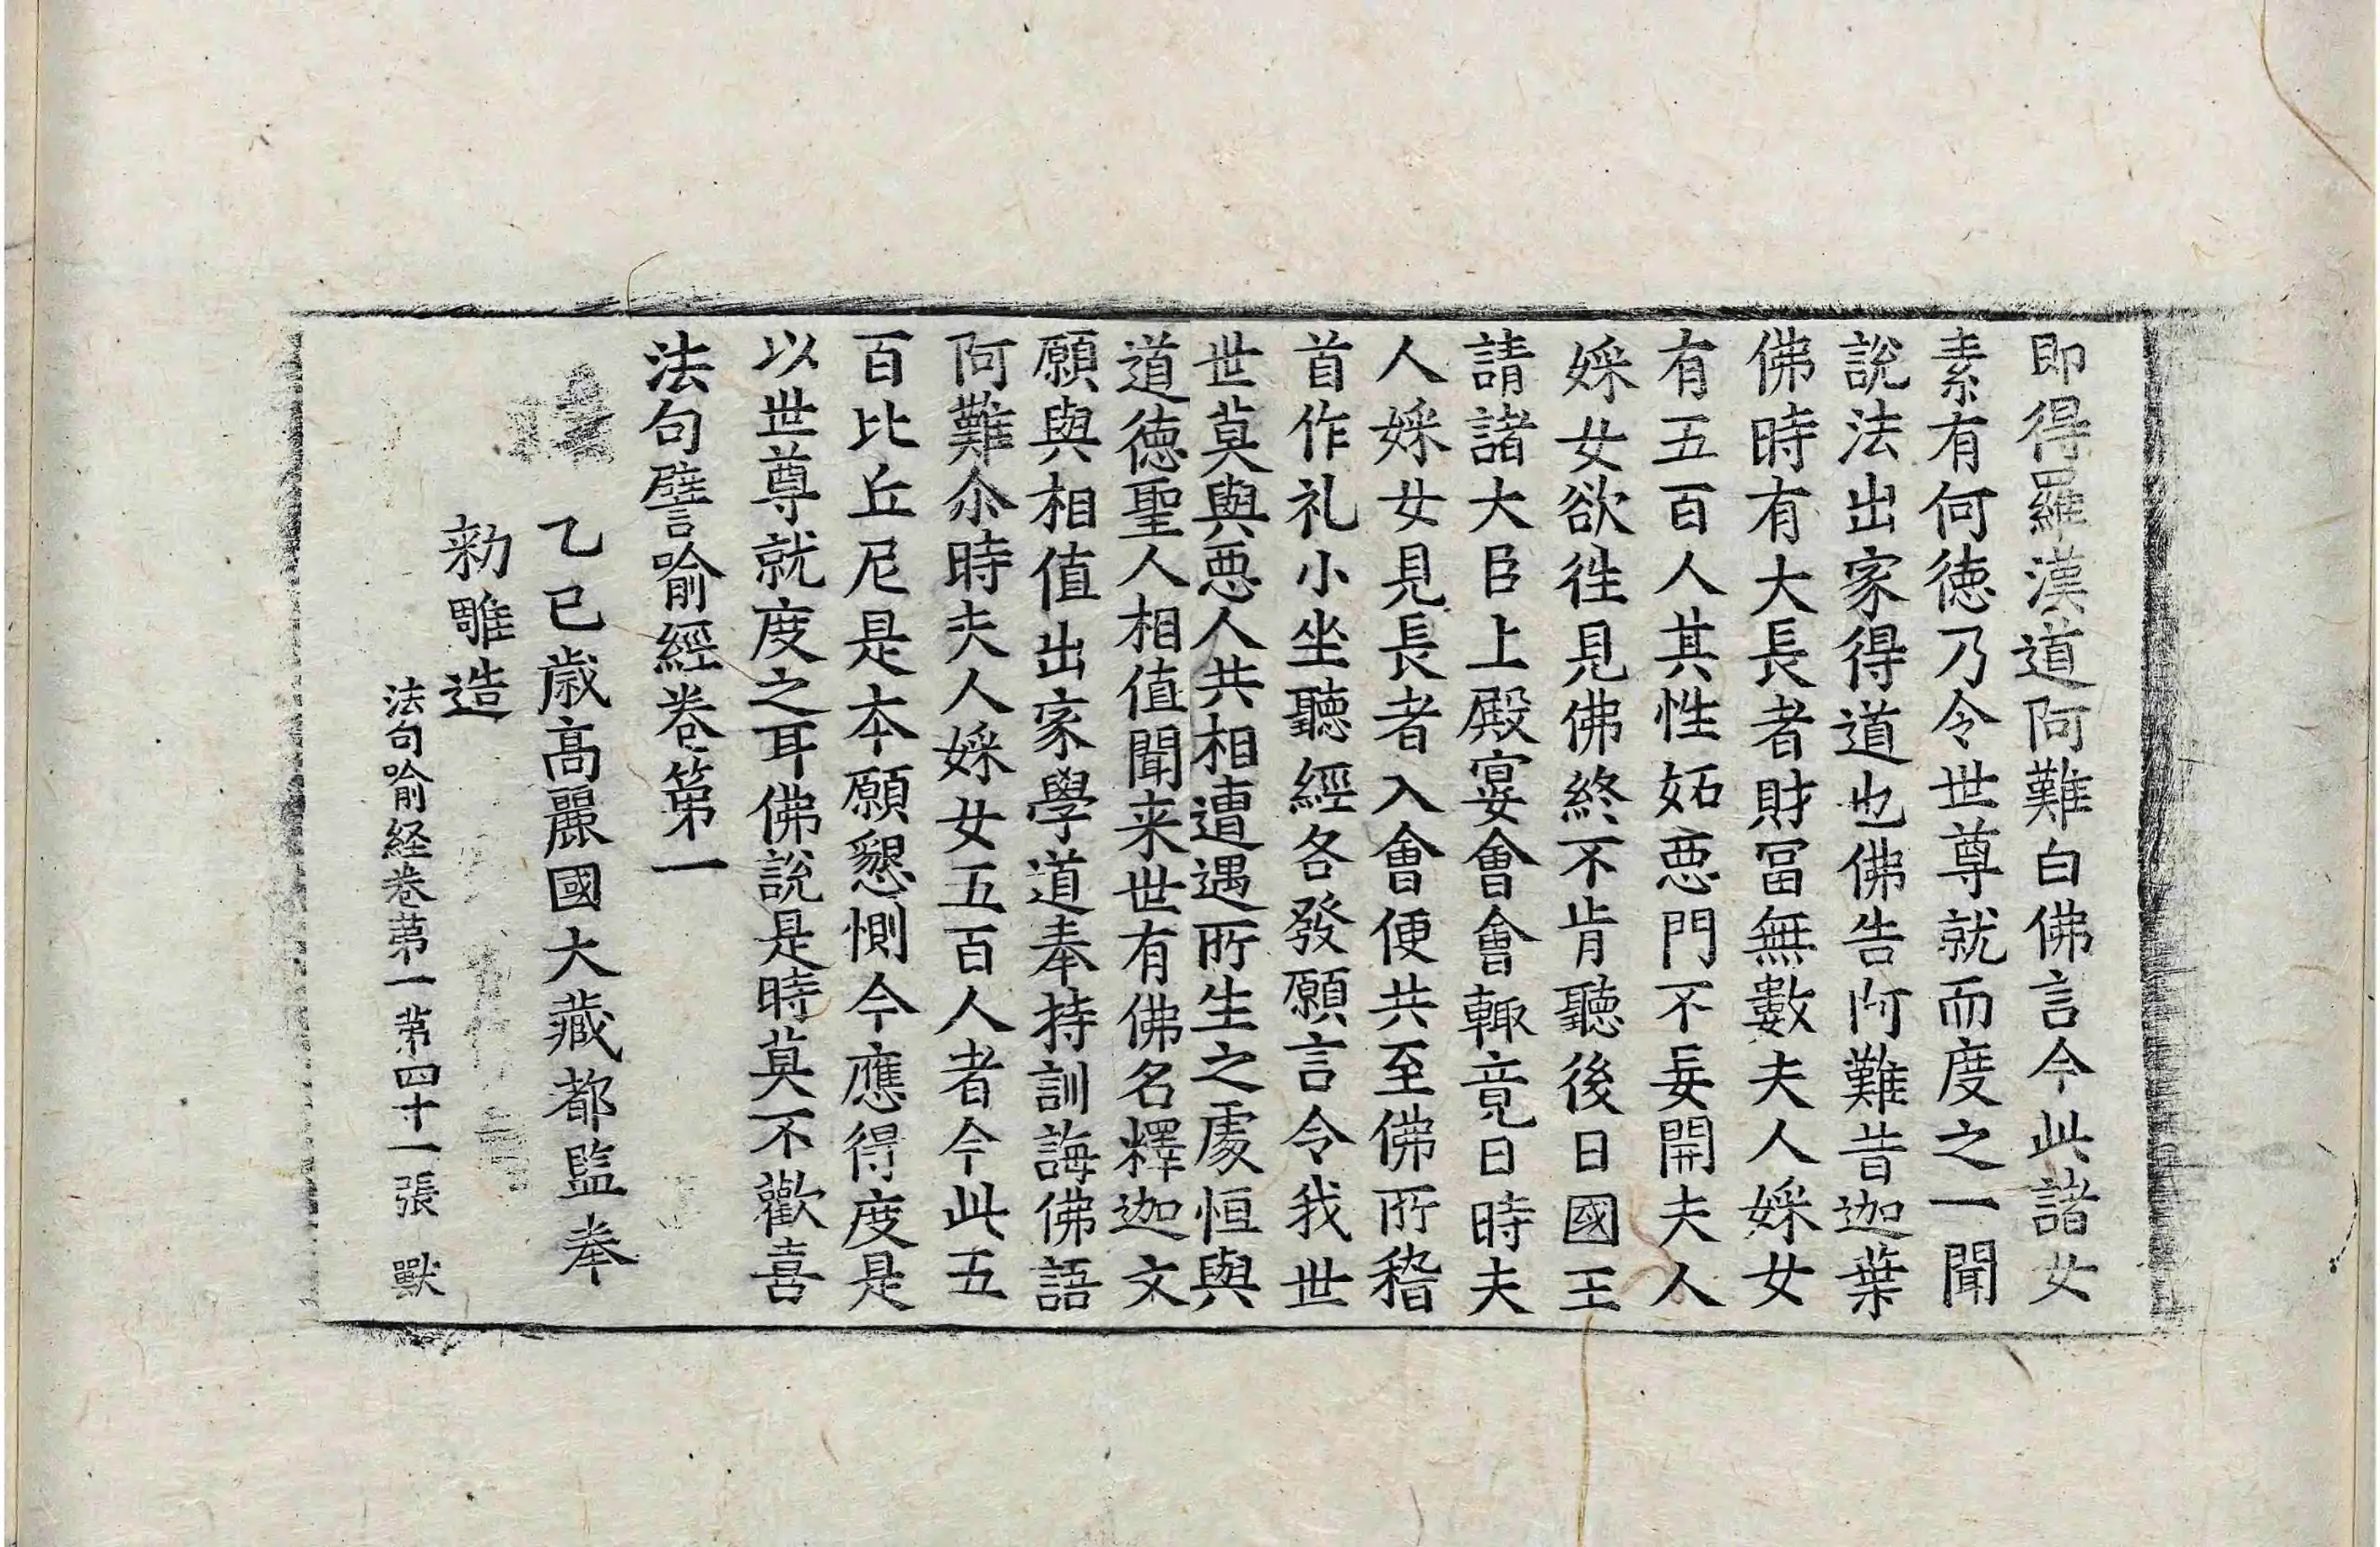 即得羅漢道阿難白佛言今此諸女
素有何德乃令世尊就而度之一聞
說法出家得道也佛告阿難昔迦葉
佛時有大長者財冨無數夫人婇女
有五百人其性妬惡門不妄開夫人
婇女欲徃見佛終不肯聽後日國王
請諸大臣上殿宴會會輙竟日時夫
人婇女見長者入會便共至佛所稽
首作礼小坐聽經各發願言令我世
世莫與惡人共相遭遇所生之處恒與
道德聖人相值聞来世有佛名釋迦文
願與相值出家學道奉持訓誨佛語
阿難尒時夫人婇女五百人者今此五
百比丘尼是本願懇惻今應得度是
以世尊就度之耳佛說是時莫不歡喜
法句譬喻經卷第一
乙巳歲高麗國大藏都監奉
勑雕造
法句喻経卷苐一 苐四十一張 獸